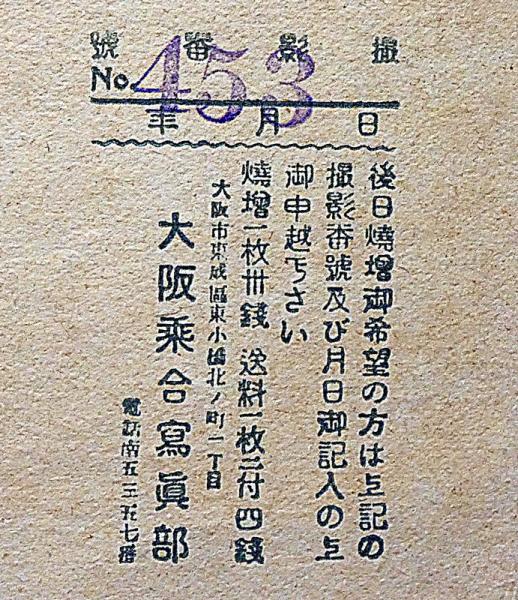 號番影撮
No. 453
年月日
後日燒增御希望の方は上記の
撮影番號及び月日御記入の上
御申越下さい
燒增一枚卅錢 送料一枚ニ付四錢
大阪市東成區東小橋北ノ町一丁目
大阪乘合寫眞部
電話南五三五七番